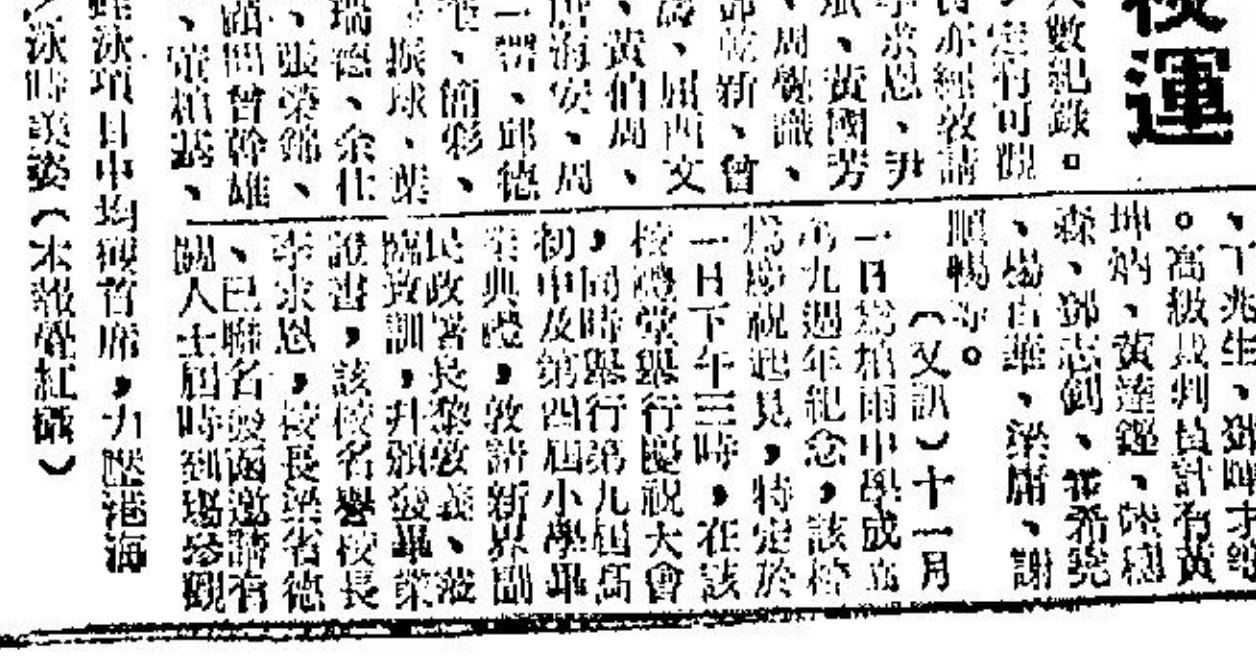 校運
人數紀錄。
定有可觀
亦經敦請
李求恩、尹
、黃國芳
、周覺識、
鄧乾新、曾
、屈西文
、黃伯周、
唐海安、周
一聲、邱德
、簡彩、
振球、葉
瑞德、余仕
、張榮錦、
顧問曾幹雄
、
、丁兆生、鄧
。高級裁判員計有黃
坤炳、黃達鏗、陳穗
森、鄧志釗、霍希堯
、楊百雄、梁庸、謝
順暢等。
(又訊)十一月
一日為柏雨中學成立
第九週年紀念,該校
為慶祝起見,特定於
一日下午三時,在該
校禮堂舉行慶祝大會
,同時舉行第九屆高
初中及第四屆小學畢
業典禮,敦請新界副
民政署長黎敦義、蒞
臨致訓,并頒發畢業
證書,該校名譽校長
李求恩,校長梁省德
、已聯名發函邀請有
關人士屆時到場參觀
蛙泳項目中均獲首席,力壓港海
泳時美姿(本報